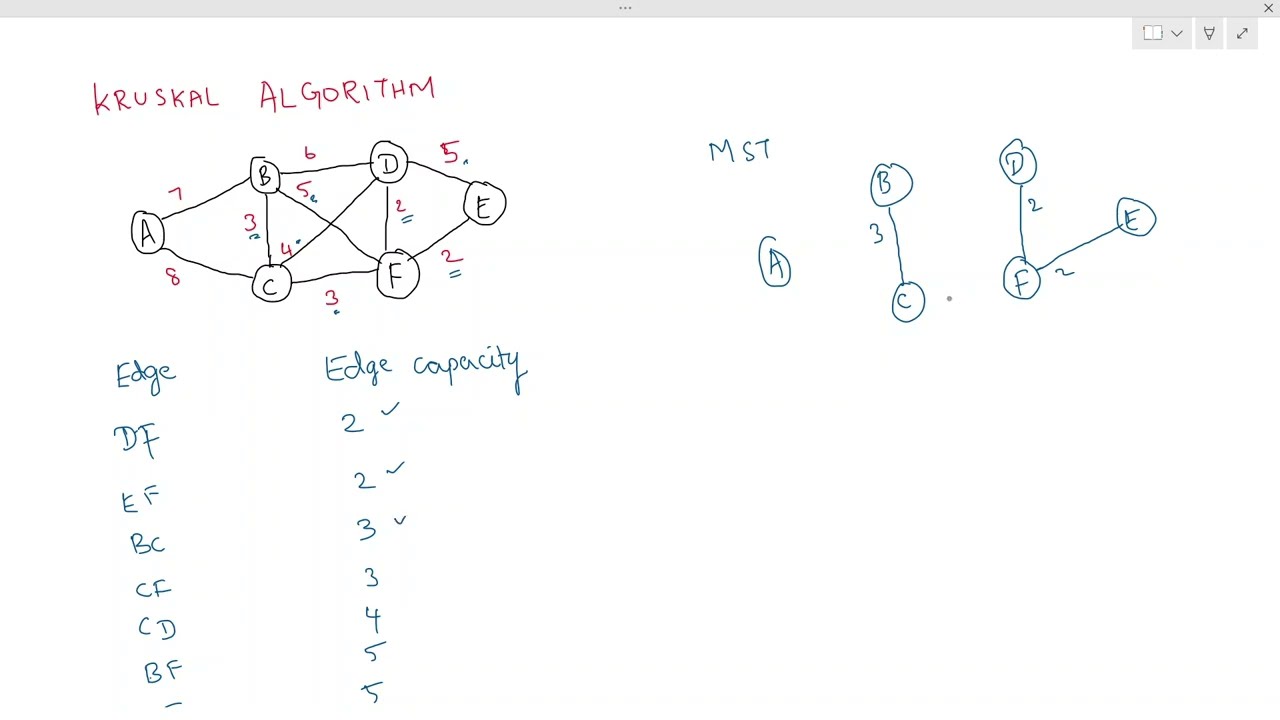 KRUSKAL ALGORITHM
MST
6
5
7
B
D
E
A
5
3
4
2
2
8
C
F
3
B
D
3
2
A
E
C
F
2
Edge Edge capacity
DF 2 ✓
EF 2 ✓
BC 3 ✓
CF 3
CD 4
BF 5
5